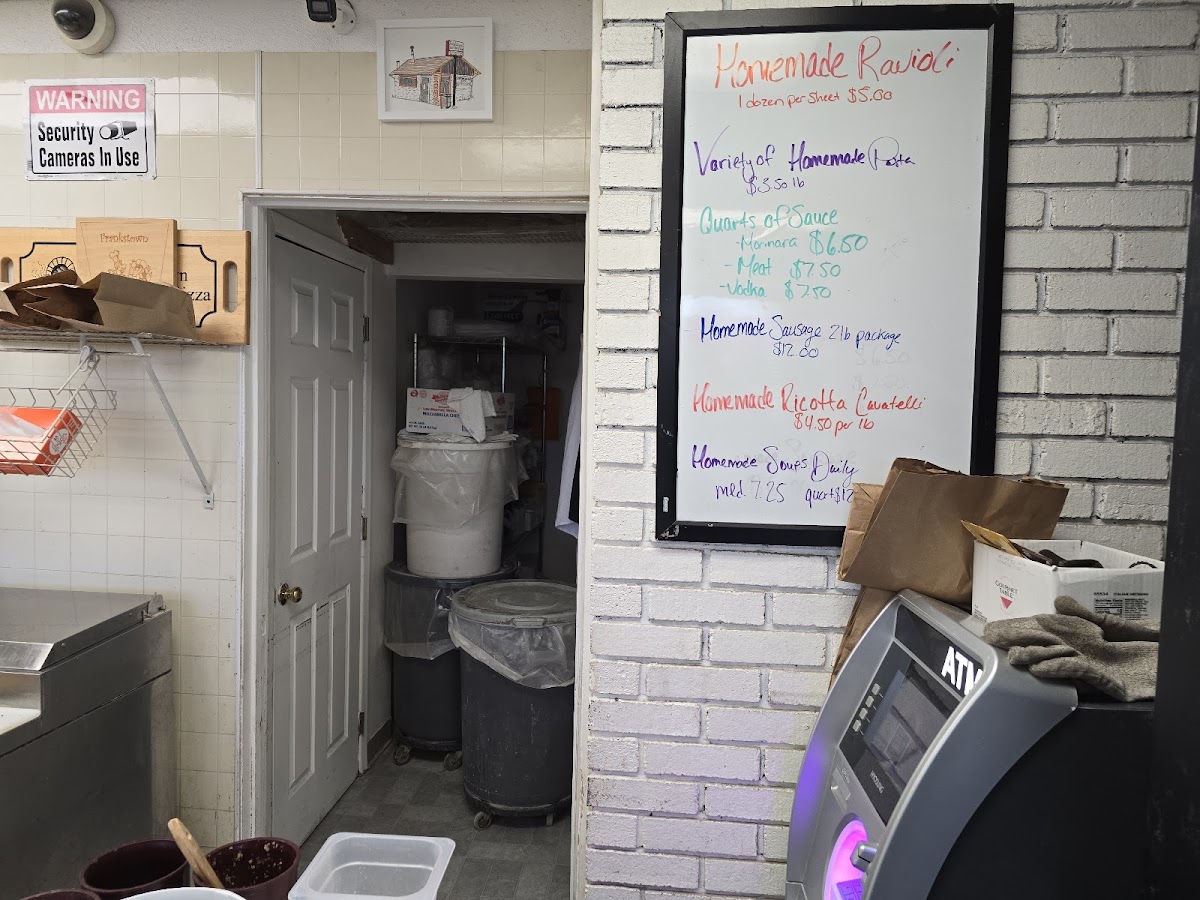 WARNING
Security
Cameras In Use
Frankstown
Homemade Ravioli
1 dozen per sheet $5.00
Variety of Homemade Pasta
$3.50 lb
Quarts of Sauce
- Marinara $6.50
- Meat $7.50
- Vodka $7.50
Homemade Sausage 2lb package
$12.00
Homemade Ricotta Cavatelli
$4.50 per lb
Homemade Soups Daily
med. 7.25 quart $12
MOZZARELLA CHEESE
ATM